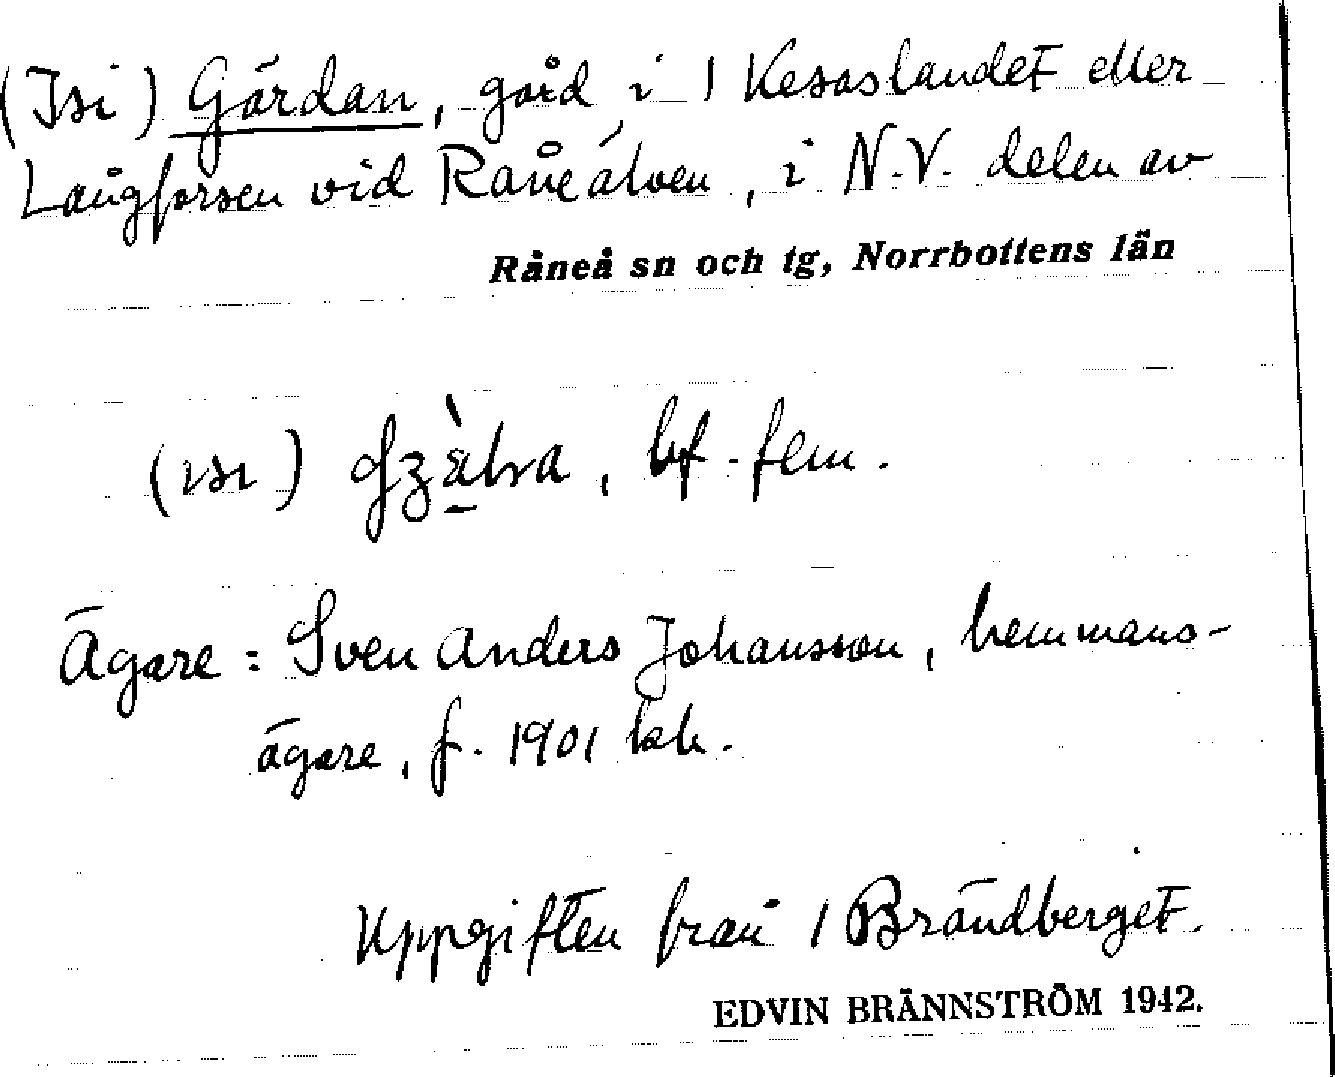 (Isi) Gärdan, gård i 1 Kesaslandet eller
Långforsen vid Råneälven, i N.V. delen av
Råneå sn och tg, Norrbottens län
(ɪsɪ) , bf. fem.
Ägare: Sven Anders Johansson, hemmans-
ägare, f. 1901 
Uppgiften från 1 Brändberget.
EDVIN BRÄNNSTRÖM 1942.